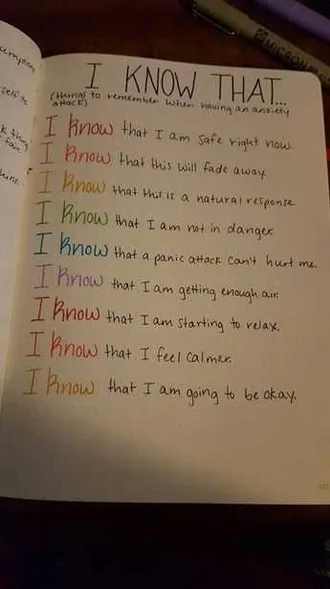 I KNOW THAT...
(things to remember when having an anxiety
attack)
I know that I am safe right now.
I know that this will fade away.
I know that this is a natural response.
I know that I am not in danger.
I know that a panic attack can't hurt me.
I know that I am getting enough air.
I know that I am starting to relax.
I know that I feel calmer.
I know that I am going to be okay.
MICRON